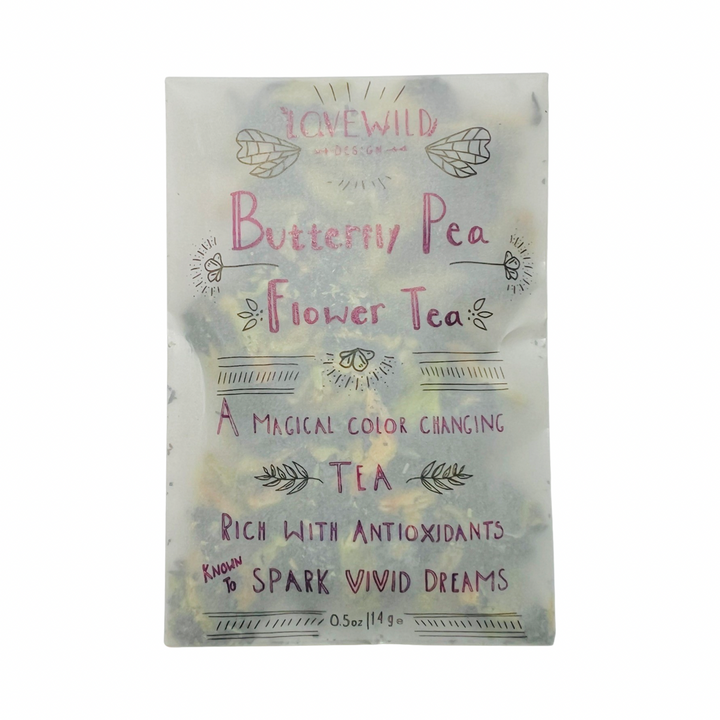 LOVEWILD
DESIGN
Butterfly Pea
Flower Tea
A MAGICAL COLOR CHANGING
TEA
RICH WITH ANTIOXIDANTS
KNOWN TO SPARK VIVID DREAMS
0.5oz|14g℮